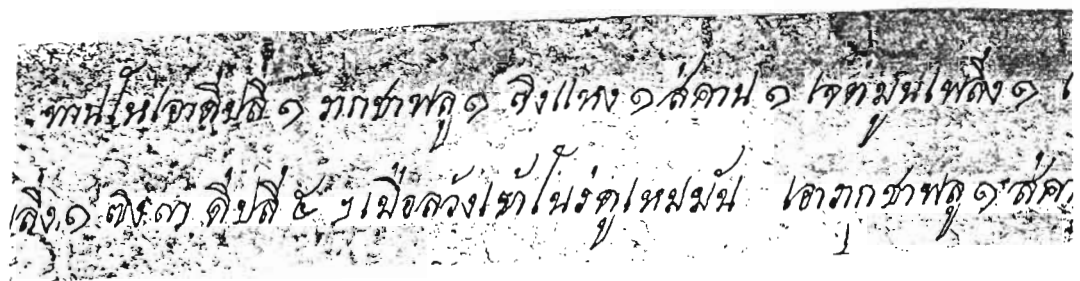 ท่านให้เอาดีปลี ๑ รากชาพลู ๑ ขิงแหง ๑ ส่ค้าน ๑ เจตมูนเพลิง ๑
เลิง ๑ ขิง ๓ ดีปลี ๕ ฯ เมื่อล่วงเข้าในรดูเหมมัน เอารากชาพลู ๑ ส่ค้า